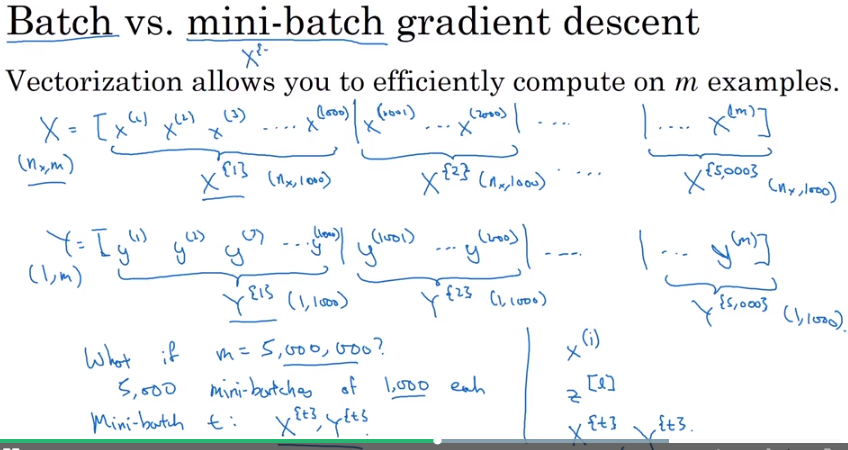 Batch vs. mini-batch gradient descent
X^{-
Vectorization allows you to efficiently compute on m examples.
X = [x^(1) x^(2) x^(3) .... x^(1000) | x^(1001) ... x^(2000) | .... | .... x^(m)]
(n_x, m)
X^{1} (n_x, 1000) X^{2} (n_x, 1000) ... X^{5,000} (n_x, 1000)
Y = [y^(1) y^(2) y^(3) ... y^(1000) | y^(1001) ... y^(2000) | ---- | ... y^(m)]
(1, m)
Y^{1} (1, 1000) Y^{2} (1, 1000) Y^{5,000} (1, 1000)
What if m = 5,000,000?
5,000 mini-batches of 1,000 each
Mini-batch t: X^{t}, Y^{t}
x^(i)
z^[l]
X^{t} Y^{t}.